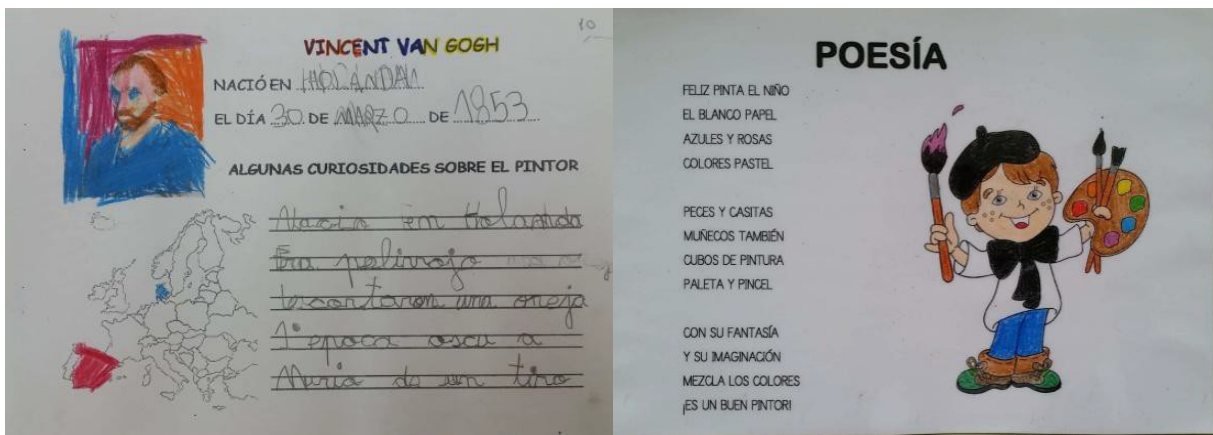 10
VINCENT VAN GOGH
NACIÓ EN HOLANDA
EL DÍA 30 DE MARZO DE 1853
ALGUNAS CURIOSIDADES SOBRE EL PINTOR
Nacio en Holanda
Era pelirrojo
le cortaron una oreja
1ª epoca oscura
Murio de un tiro
POESÍA
FELIZ PINTA EL NIÑO
EL BLANCO PAPEL
AZULES Y ROSAS
COLORES PASTEL
PECES Y CASITAS
MUÑECOS TAMBIÉN
CUBOS DE PINTURA
PALETA Y PINCEL
CON SU FANTASÍA
Y SU IMAGINACIÓN
MEZCLA LOS COLORES
¡ES UN BUEN PINTOR!